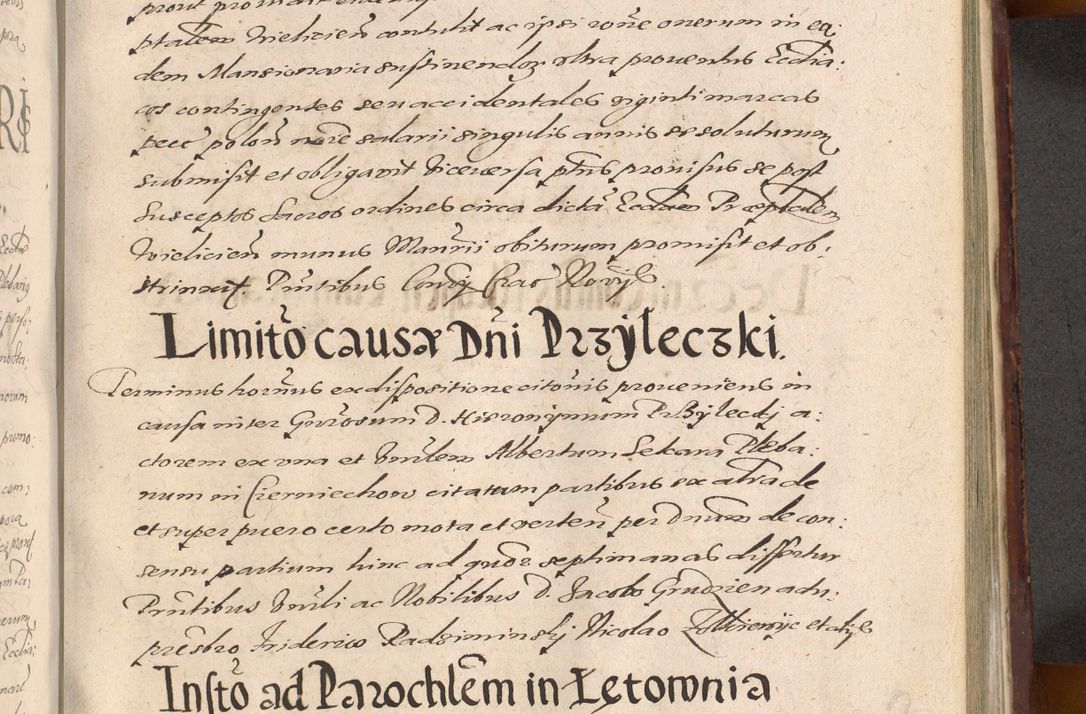 ptalem Vielicień contulit ac ipsi rőne onerum in ea:
dem Mansionaria sustinendoꝝ ultra proventus Ecclia:
cos contingentes seu accidentales viginti marcas
pecc polon noie salarii singulis annis se soluturum
submisit et obligavit Viceversa ptns provisus se post
susceptos sacros ordines circa dictā Ecclam Præptalem
Vielicień munus Mansrii obiturum promisit et ob:
strinxit Prntibus Crac Novys.
Limitō causæ Dñi Przÿleczki.
Terminus hornus ex dispositione citonis proveniens in
causa inter Gnrosum D. Hieronÿmum Przÿleckj a:
ctorem ex una et Vnrlem Albertum Sekara Pleba:
num in Czerniechow citatum partibus ex altra de
et super puero certo mota et verteń per Dnum de con:
sensu partium hinc ad quor septimanas differtur
Prntibus Vnrli ac Nobilibus D. Jacobo Grudzien adu:
presbro Friderico Radziminskj Nicolao et alys
Instō ad Parochlem in Łętownia